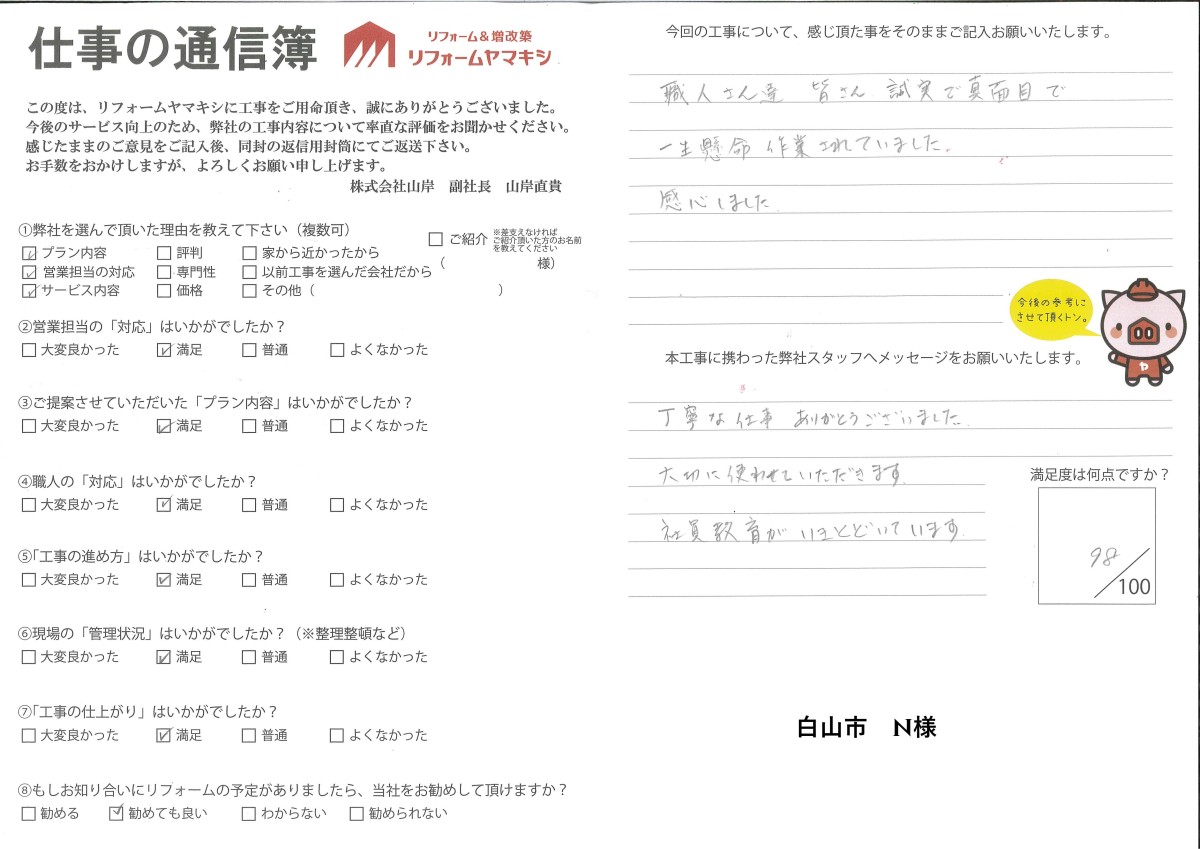 仕事の通信簿
リフォーム&増改築
リフォームヤマキシ
この度は、リフォームヤマキシに工事をご用命頂き、誠にありがとうございました。
今後のサービス向上のため、弊社の工事内容について率直な評価をお聞かせください。
感じたままのご意見をご記入後、同封の返信用封筒にてご返送下さい。
お手数をおかけしますが、よろしくお願い申し上げます。
株式会社山岸 副社長 山岸直貴
①弊社を選んで頂いた理由を教えて下さい（複数可）
☑プラン内容 □評判 □家から近かったから
☑営業担当の対応 □専門性 □以前工事を選んだ会社だから
☑サービス内容 □価格 □その他（ ）
□ご紹介 ※差支えなければ
ご紹介頂いた方のお名前
を教えてください
（ 様）
②営業担当の「対応」はいかがでしたか？
□大変良かった ☑満足 □普通 □よくなかった
③ご提案させていただいた「プラン内容」はいかがでしたか？
□大変良かった ☑満足 □普通 □よくなかった
④職人の「対応」はいかがでしたか？
□大変良かった ☑満足 □普通 □よくなかった
⑤「工事の進め方」はいかがでしたか？
□大変良かった ☑満足 □普通 □よくなかった
⑥現場の「管理状況」はいかがでしたか？（※整理整頓など）
□大変良かった ☑満足 □普通 □よくなかった
⑦「工事の仕上がり」はいかがでしたか？
□大変良かった ☑満足 □普通 □よくなかった
⑧もしお知り合いにリフォームの予定がありましたら、当社をお勧めして頂けますか？
□勧める ☑勧めても良い □わからない □勧められない
今回の工事について、感じ頂た事をそのままご記入お願いいたします。
職人さん達 皆さん 誠実で真面目で
一生懸命 作業されていました。
感心しました
今後の参考に
させて頂くトン。
本工事に携わった弊社スタッフへメッセージをお願いいたします。
丁寧な仕事 ありがとうございました。
大切に使わせていただきます。
社員教育がいきとどいています。
満足度は何点ですか？
98/100
白山市 N様